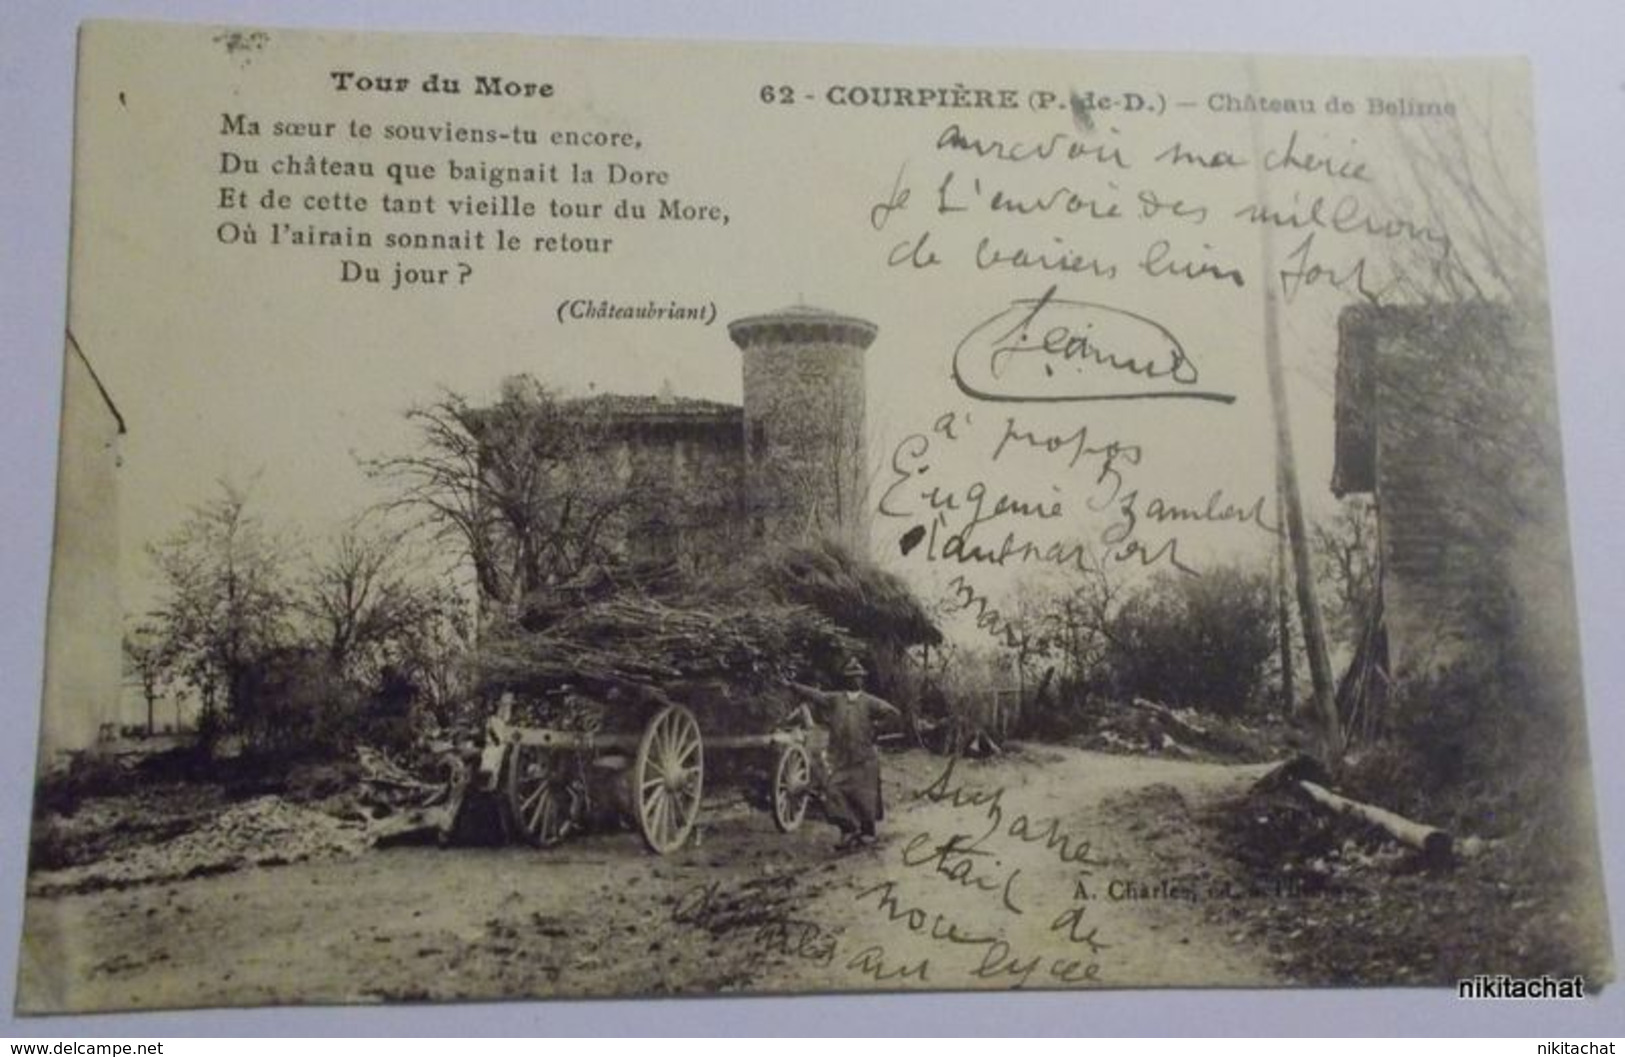 Tour du More
Ma sœur te souviens-tu encore,
Du château que baignait la Dore
Et de cette tant vieille tour du More,
Où l'airain sonnait le retour
Du jour ?
(Châteaubriant)
62 - COURPIÈRE (P.-de-D.) — Château de Belime
aurevoir ma cherie
je t'envoie des millions
de baisers bien fort
Jeanne
à propos
Eugenie
Suzanne
etait de
noce
au lycée
A. Charles, éd.
nikitachat
www.delcampe.net
nikitachat